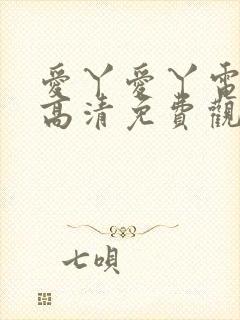 愛丫愛丫電
高清免費觀
七唄